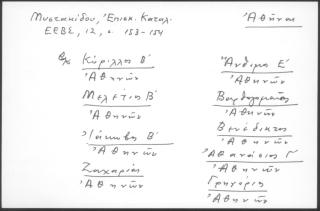 Μυστακίδου, Ἐπισκ. Καταλ.
Ἀθῆναι
ΕΕΒΣ, 12, σ. 153-154
Κύριλλος Β΄
Ἀθηνῶν
Μελέτιος Β΄
Ἀθηνῶν
Ἰάκωβος Β΄
Ἀθηνῶν
Ζαχαρίας
Ἀθηνῶν
Ἄνθιμος Ε΄
Ἀθηνῶν
Βαρθολομαῖος
Ἀθηνῶν
Βενέδικτος
Ἀθηνῶν
Ἀθανάσιος Γ΄
Ἀθηνῶν
Γρηγόριος
Ἀθηνῶν